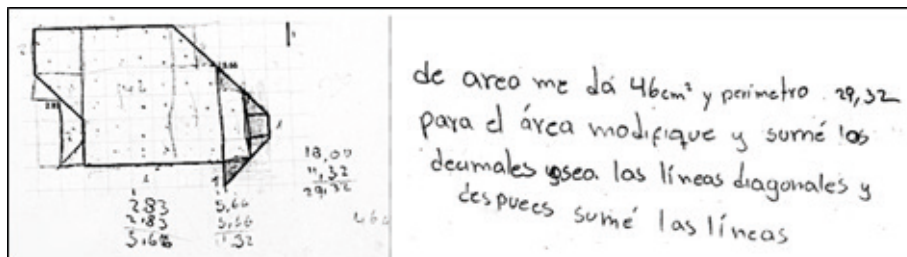 2.83
2.83
5.66
5,66
5.66
11.32
18,00
11,32
29,32
de area me dá 46cm² y perímetro 29,32
para el área modifique y sumé los
decimales osea las líneas diagonales y
despues sumé las líneas